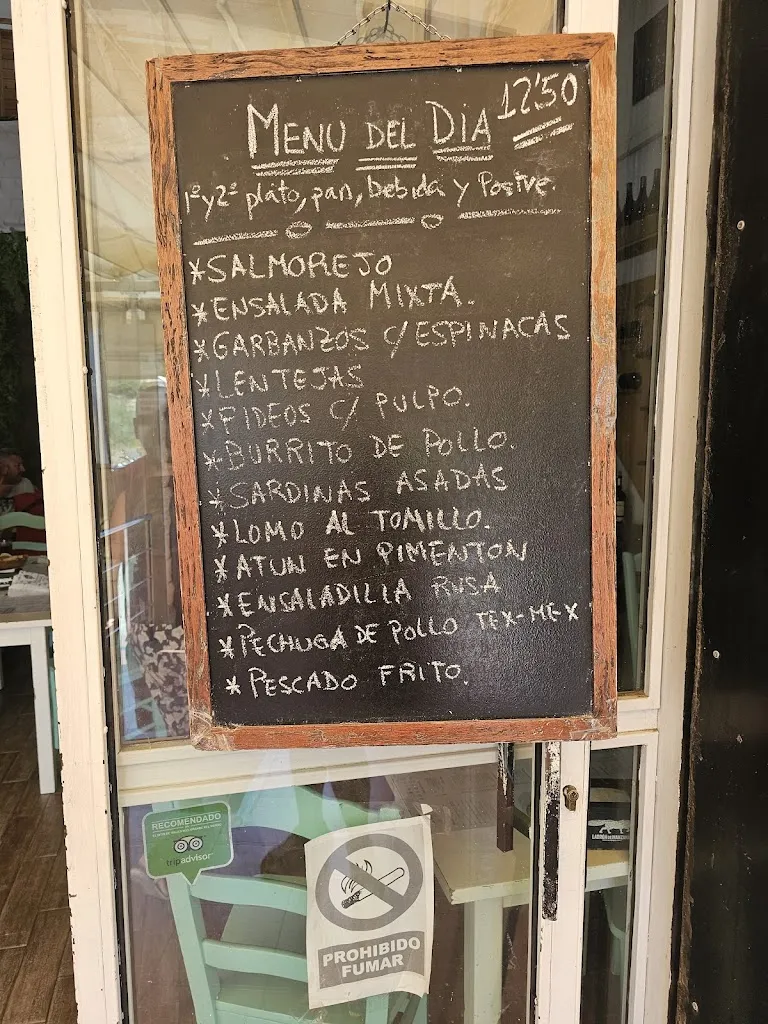 MENU DEL DIA 12'50
1º y 2º plato, pan, bebida y Postre.
*SALMOREJO
*ENSALADA MIXTA.
*GARBANZOS C/ESPINACAS
*LENTEJAS
*FIDEOS C/ PULPO.
*BURRITO DE POLLO.
*SARDINAS ASADAS
*LOMO AL TOMILLO.
*ATUN EN PIMENTON
*ENSALADILLA RUSA
*PECHUGA DE POLLO TEX-MEX
*PESCADO FRITO.
RECOMENDADO
tripadvisor
PROHIBIDO
FUMAR